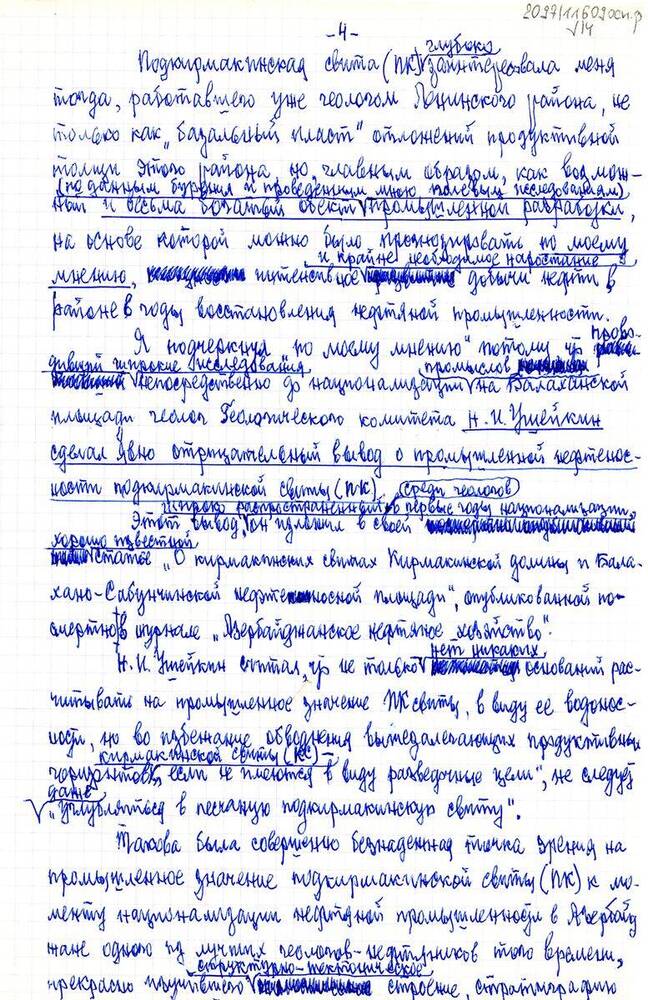 2097/11609осн.ф
√14
-4-
глубоко
Подкирмакинская свита (ПК) √ заинтересовала меня
тогда, работавшего уже геологом Ленинского района, не
только как „базальный пласт" отложений продуктивной
толщи этого района, но, главным образом, как возмож-
(по данным бурения и проведенным мною полевым исследованиям)
ный и весьма богатый объект √ промышленной разработки,
на основе которой можно было прогнозировать по моему
и крайне необходимое наростание
мнению, интенсивное √ добычи нефти в
районе в годы восстановления нефтяной промышленности.
Я подчеркнул „по моему мнению" потому, чр прово-
дивший широкие исследования промыслов
непосредственно до национализации √ на Балаханской
площади геолог Геологического комитета Н.И. Ушейкин
сделал явно отрицательный вывод о промышленной нефтенос-
ности подкирмакинской свиты (ПК). среди геологов
широко распространенный в первые годы национализации,
Этот вывод, он изложил в своей
хорошо известной
статье „О кирмакинских свитах Кирмакинской долины и Бала-
хано-Сабунчинской нефтеносной площади", опубликованной по-
смертно в журнале „Азербайджанское нефтяное хозяйство".
нет никаких
Н.И. Ушейкин считал, чр не только √ оснований рас-
читывать на промышленное значение ПК свиты, в виду ее водонос-
ности, но во избежание обводнения вышезалегающих продуктивных
кирмакинской свиты (КС) –
горизонтов √, „если не имеются в виду разведочные цели", не следует
даже
√ „углубляться в песчаную подкирмакинскую свиту".
Такова была совершенно безнадежная точка зрения на
промышленное значение подкирмакинской свиты (ПК) к мо-
менту национализации нефтяной промышленности в Азербайд
жане одного из лучших геологов-нефтяников того времени,
структурно-тектоническое
прекрасно изучившего √ строение, стратиграфию